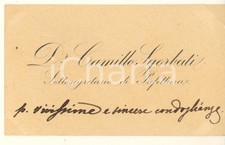 Dr Camillo Sgorbati
Sottosegretario di Prefettura
p. vivissime e sincere condoglianze